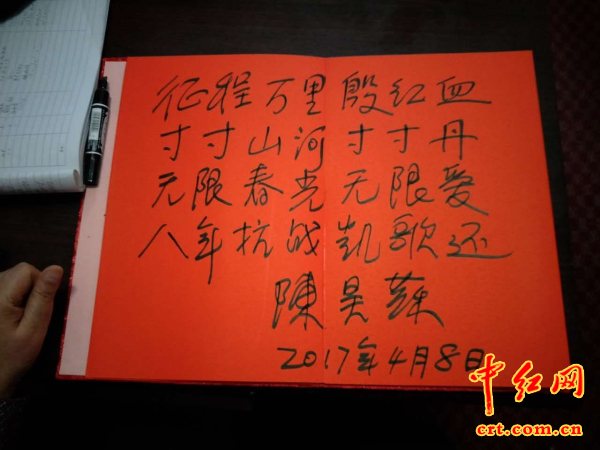 征程万里殷红血
寸寸山河寸寸丹
无限春光无限爱
八年抗战凯歌还
陳昊蘇
2017年4月8日
中红网
crt.com.cn